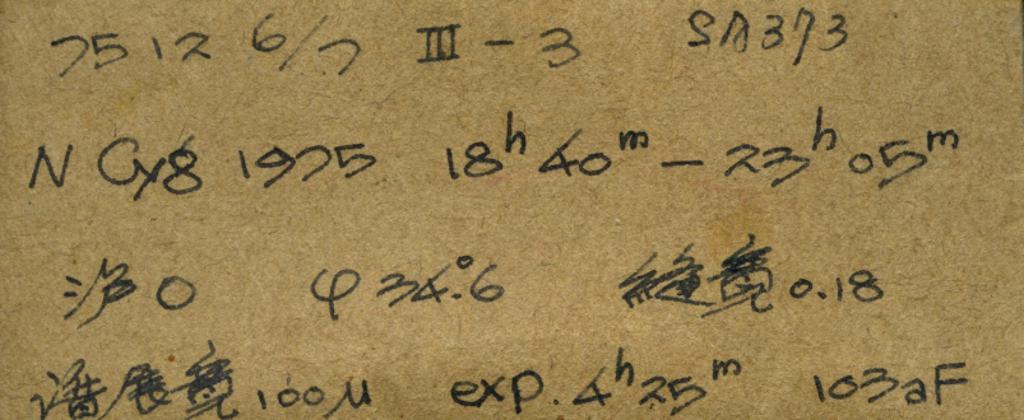 7512 6/7 III - 3 SA373
N Cyg 1975 18ʰ40ᵐ - 23ʰ05ᵐ
沪0 φ34.°6 縫宽0.18
谱展宽100μ exp. 4ʰ25ᵐ 103aF